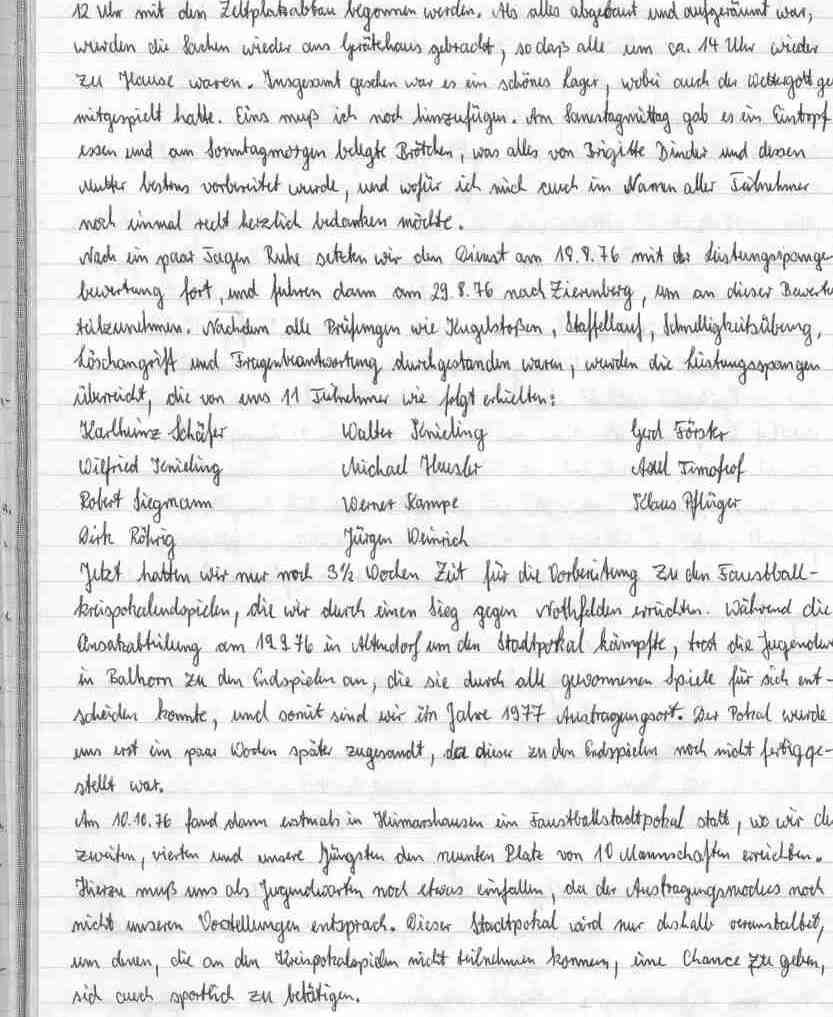 12 Uhr mit dem Zeltplatzabbau begonnen werden. Als alles abgebaut und aufgeräumt war,
wurden die Sachen wieder ans Gerätehaus gebracht, so daß alle um ca. 14 Uhr wieder
zu Hause waren. Insgesamt gesehen war es ein schönes Lager, wobei auch der Wettergott ge
mitgespielt hatte. Eins muß ich noch hinzufügen. Am Samstagmittag gab es ein Eintopf
essen und am Sonntagmorgen belegte Brötchen, was alles von Brigitte Binder und dessen
Mutter bestens vorbereitet wurde, und wofür ich mich auch im Namen aller Teilnehmer
noch einmal recht herzlich bedanken möchte.
Nach ein paar Tagen Ruhe setzten wir den Dienst am 18.8.76 mit der Leistungsspange
bewertung fort, und fuhren dann am 29.8.76 nach Zierenberg, um an dieser Bewertu
teilzunehmen. Nachdem alle Prüfungen wie Kugelstoßen, Staffellauf, Schnelligkeitsübung,
Löschangriff und Fragenbeantwortung durchgestanden waren, wurden die Leistungsspangen
überreicht, die von uns 11 Teilnehmer wie folgt erhielten:
Karlheinz Schäfer Walter Knieling Gerd Förster
Wilfried Knieling Michael Heusler Axel Timofeof
Robert Siegmann Werner Kampe Klaus Pflüger
Dirk Röhrig Jürgen Weinrich
Jetzt hatten wir nur noch 3½ Wochen Zeit für die Vorbereitung zu den Faustball-
kreispokalendspielen, die wir durch einen Sieg gegen Nothfelden erreichten. Während die
Einsatzabteilung am 19.9.76 in Altendorf um den Stadtpokal kämpfte, trat die Jugendw
in Balhorn zu den Endspielen an, die sie durch alle gewonnenen Spiele für sich ent-
scheiden konnte, und somit sind wir im Jahre 1977 Austragungsort. Der Pokal wurde
uns erst ein paar Wochen später zugesandt, da dieser zu den Endspielen noch nicht fertig ge-
stellt war.
Am 10.10.76 fand dann erstmals in Heimarshausen ein Faustballstadtpokal statt, wo wir de
zweiten, vierten und unsere Jüngsten den neunten Platz von 10 Mannschaften erreichten.
Hierzu muß uns als Jugendwarten noch etwas einfallen, da der Austragungsmodus noch
nicht unseren Vorstellungen entsprach. Dieser Stadtpokal wird nur deshalb veranstaltet,
um denen, die an den Kreispokalspielen nicht teilnehmen konnen, eine Chance zu geben,
sich auch sportlich zu betätigen.